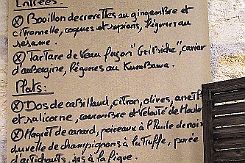 Entrées:
⊗ Bouillon de crevettes au gingembre et
citronnelle, coques et copions, légumes au
sésame.
⊗ Tartare de Veau façon "Gétside", caviar
d'aubergine, légumes au
Plats:
⊗ Dos de cabillaud, citron, olives, aneth
et salicorne, concombre et Velouté de
⊗ Magret de canard, poireaux à l'huile de noi
duxelle de champignons à la truffe, purée
d'artichauts, jus à la figue.